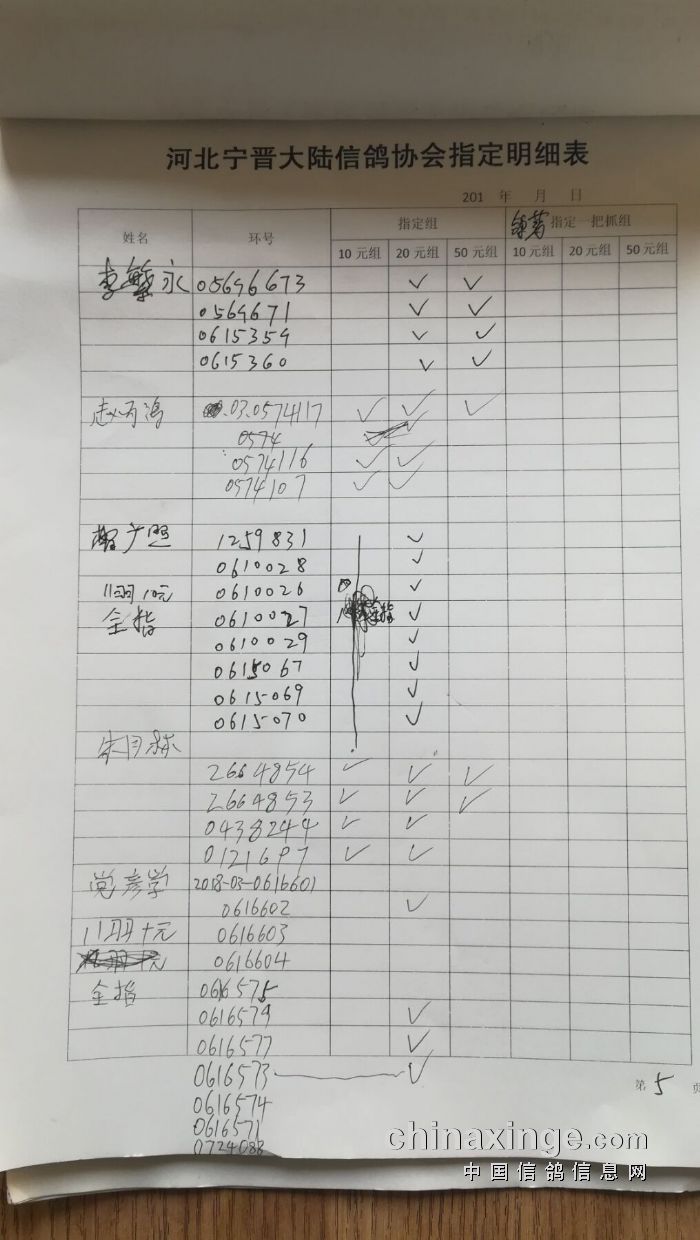 河北宁晋大陆信鸽协会指定明细表
201 年 月 日
姓名 环号 指定组 指定一把抓组
10元组 20元组 50元组 10元组 20元组 50元组
李繁永 05696673 ✓ ✓
0569671 ✓ ✓
0615359 ✓ ✓
0615360 ✓ ✓
03.0574117 ✓ ✓ ✓
0574
0574116 ✓ ✓
0574107 ✓ ✓
1259831 ✓
0610028 ✓
11羽10元 0610026 ✓
全指 0610027 ✓
0610029 ✓
0615067 ✓
0615069 ✓
0615070 ✓
2664854 ✓ ✓ ✓
2664853 ✓ ✓ ✓
0438244 ✓ ✓
0121697 ✓ ✓
党彦学 2018-03-0616601
0616602 ✓
11羽十元 0616603
0616604
全指 0616575
0616579 ✓
0616577 ✓
0616573 ✓
0616574
0616571
0724088
第5页
chinaxinge.com
中国信鸽信息网